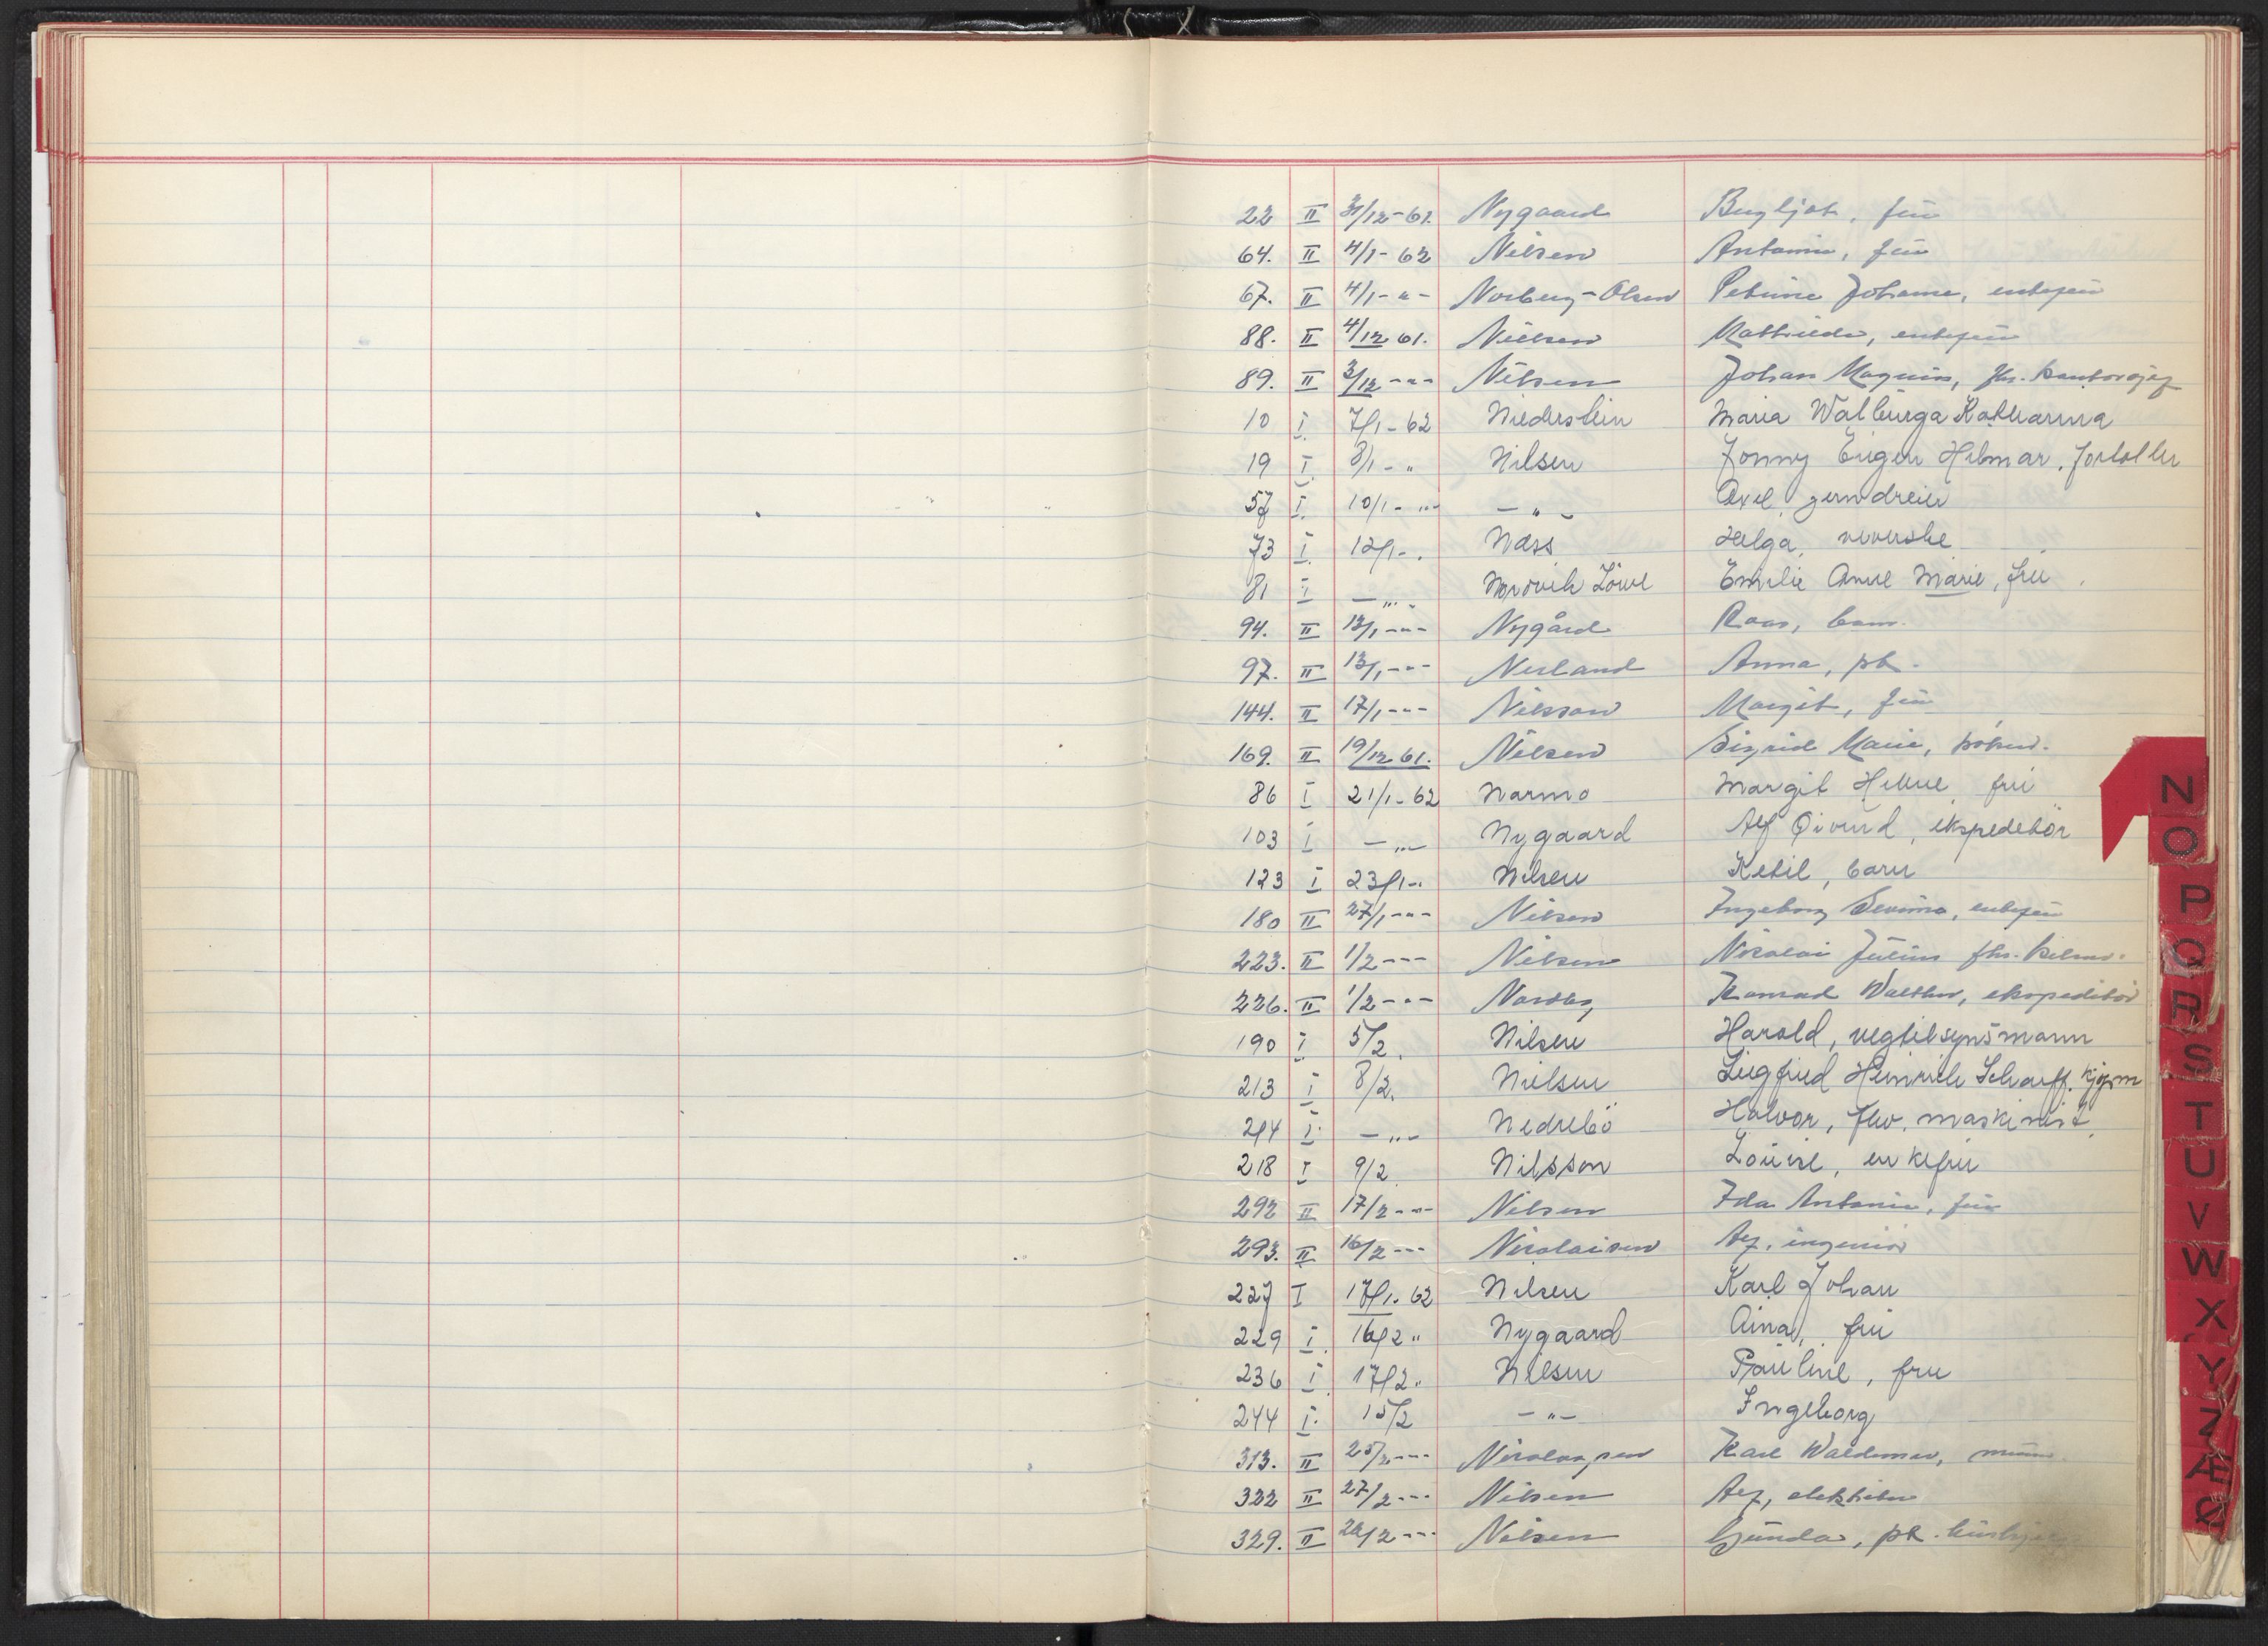 22 II 31/12-61. Nygaard Bergljot, frü
64. II 4/1-62 Nilsen Antonie, frü
67. II 4/1-"- Norberg-Olsen Petrine Johanne, enkefrü
88. II 4/12 61. Nielsen Mathilde, enkefrü
89. II 3/12-"- Nilsen Johan Magnus, fhv. kontorsjef
10 I 7/1-62 Niederstein Maria Walburga Katharina
19 I. 8/1-" Nilsen Jonny Eugen Hilmar, fortoller
57 I. 10/1-"- -"- Axel, jerndreier
73 I. 12/1-. Næss Helga, veverske
81 I -"- Løwe Emilie Anne Marie, frü
94. II 13/1-"- Nygård Roar, barn.
97. II 13/1-"- Nerland Anna, pk.
144. II 17/1-"- Nilsson Margit, frü
169. II 19/12 61. Nilsen Sigrid Marie,
86 I 21/1-62 Narmo Margit Helene frü
103 I -"- Nygaard Alf Øivind, ekspeditör
123 I 23/1-. Nilsen Ketil, barn
180 II 27/1-"- Nilsen Ingeborg Severine, enkefrü
223. II 1/2--- Nilsen Nicolai Julius fhv.
226. II 1/2-"- Nordby Konrad Walther, ekspeditör
190 I 5/2. Nilsen Harald, vegtilsynsmann
213 I 8/2. Nielsen Siegfried Heinrich Scharff. kjøpm
214 I. -"- Nedrebö Halvor, fhv. maskinist
218 I 9/2. Nilsson Louise, enkefrü
292 II 17/2-"- Nilsen Ida Antonie, frü
293. II 16/2--- Nicolaisen Alf, ingeniör
227 I 17/1. 62 Nilsen Karl Johan
229 I. 16/2 " Nygaard Aina, frü
236 I. 17/2 " Nilsen Pauline, fru
244 I. 15/2 -"- Ingeborg
313. II 25/2--- Nicolaysen Karl Waldemar,
322 II 27/2--- Nilsen Alf, elektriker
329. II 26/2--- Nilsen Gunda, pk.
N
O
P
Q
R
S
T
U
V
W
X
Y
Z
Æ
Ø